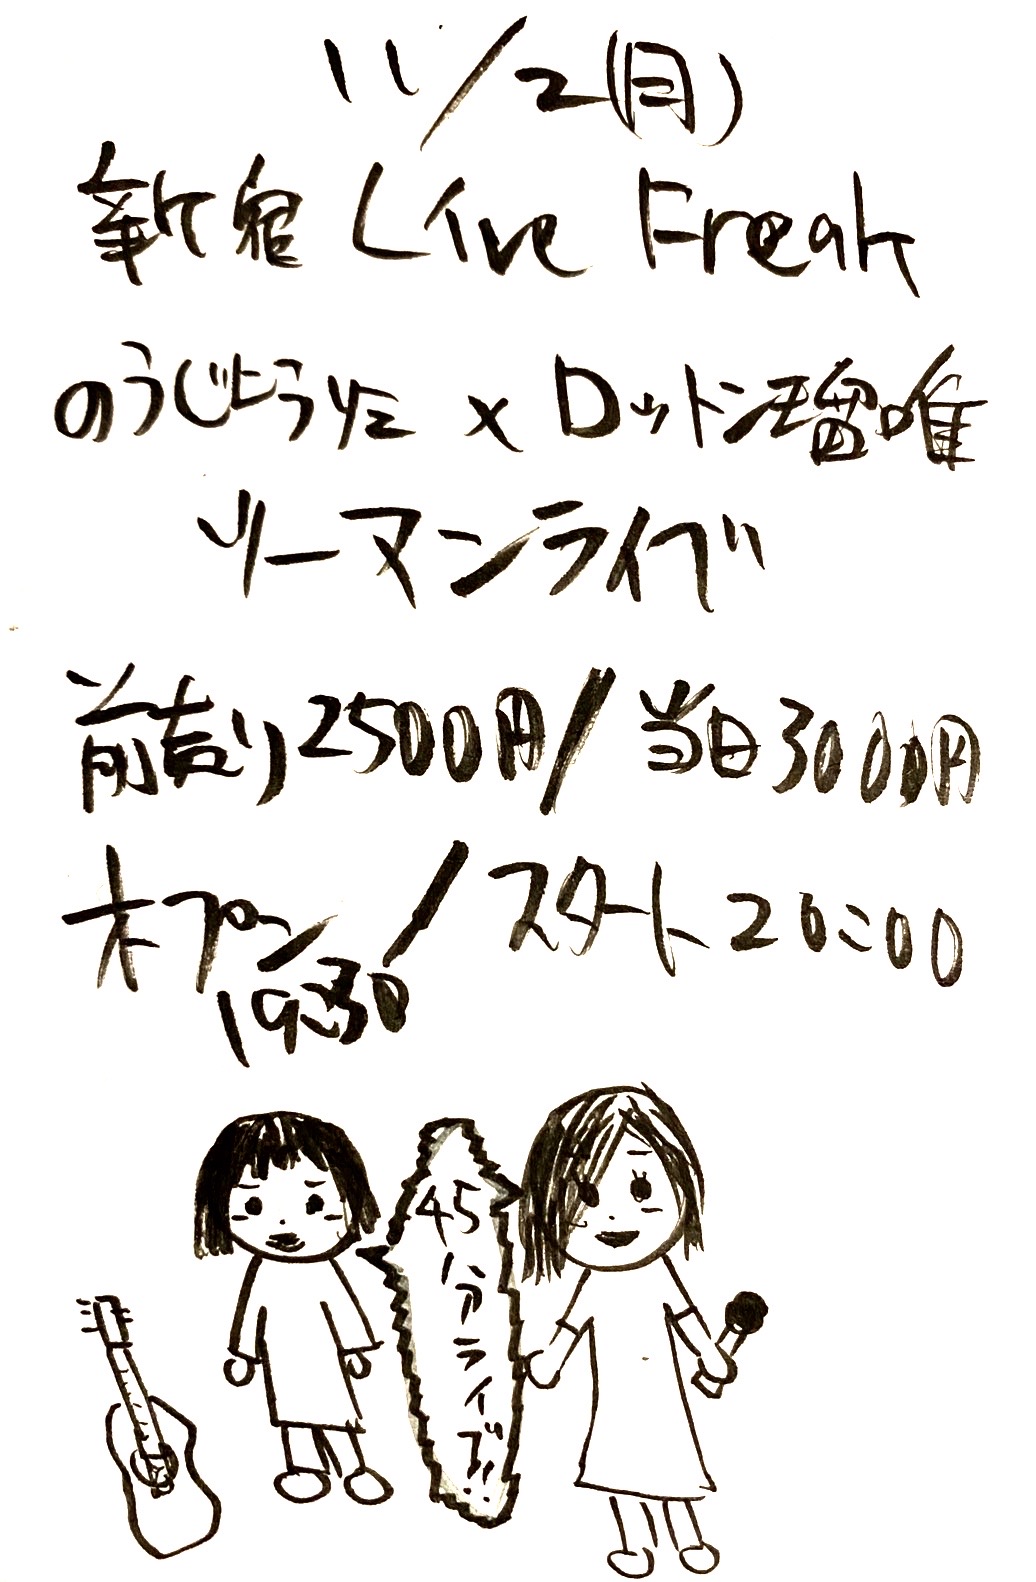 11/2(月)
新宿 Live Freak
のうじょうりえ × ロットン瑠唯
ツーマンライブ
前売り2500円/当日3000円
オープン/スタート20:00
19:30
45分ライブ!!